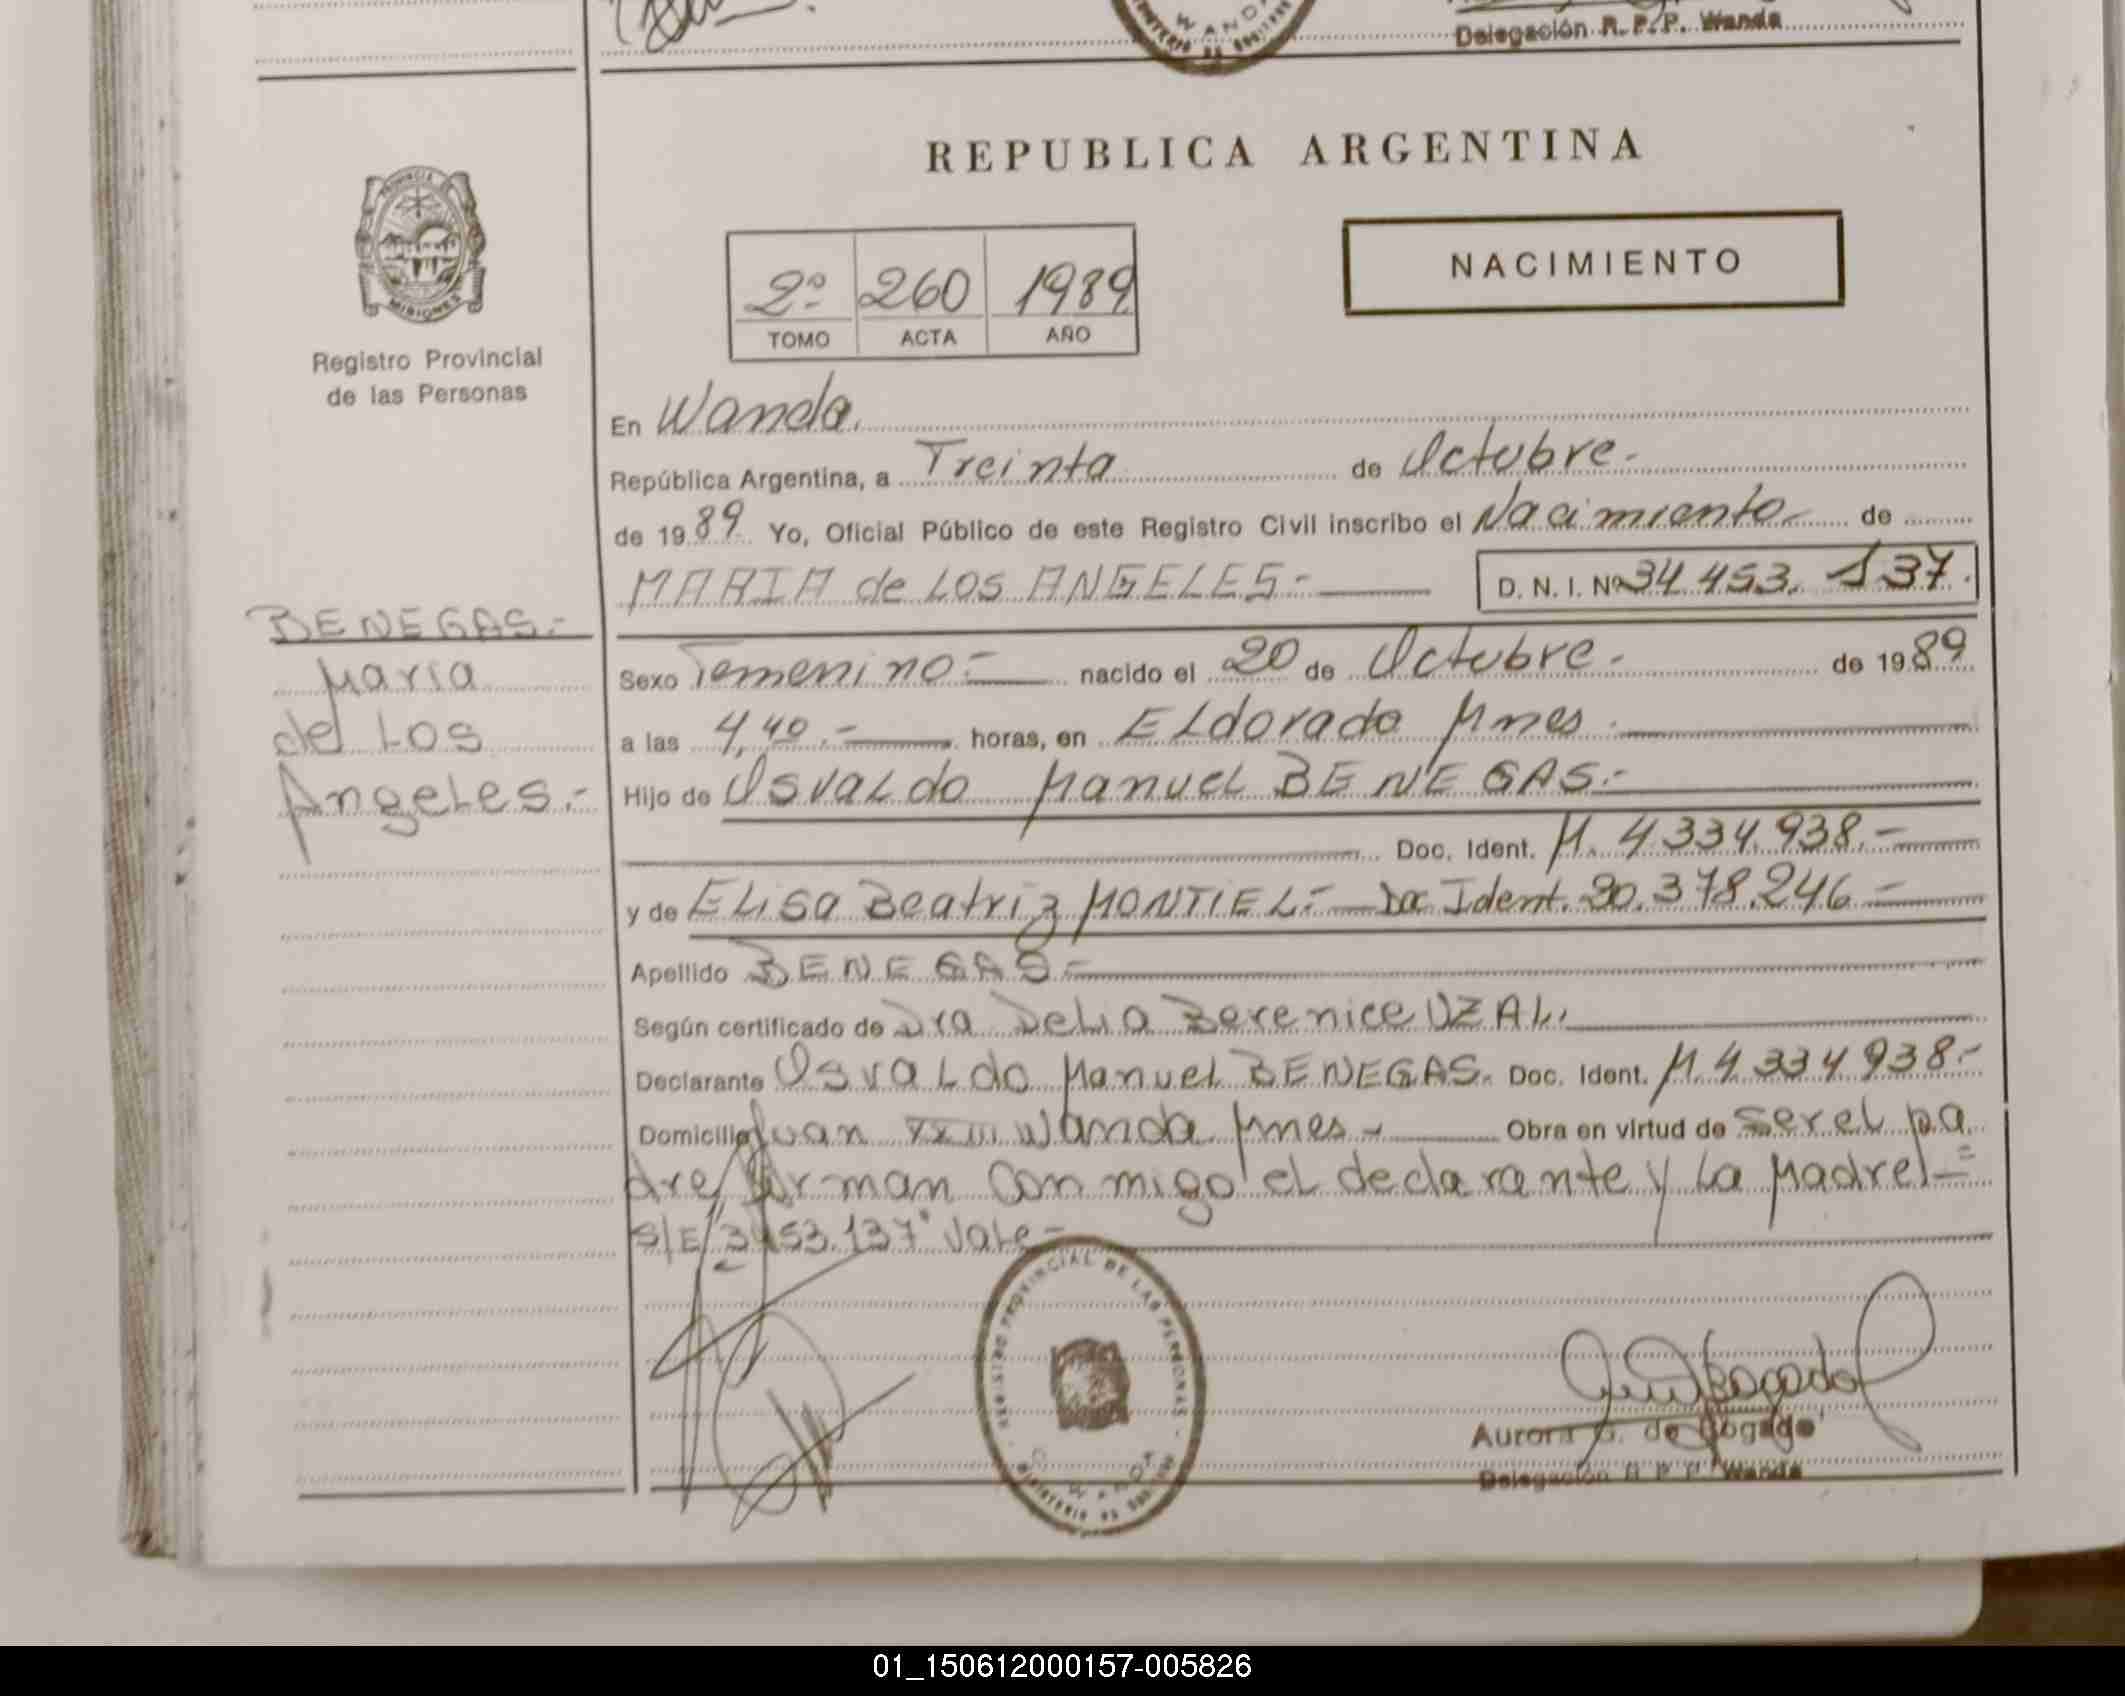 WANDA
MINISTERIO DE GOBIERNO
Delegación R. P. P. Wanda
REPUBLICA ARGENTINA
PROVINCIA DE
MISIONES
Registro Provincial
de las Personas
2º 260 1989
TOMO ACTA AÑO
NACIMIENTO
En Wanda.
República Argentina, a Treinta de Octubre.-
de 1989 Yo, Oficial Público de este Registro Civil inscribo el Nacimiento de
MARIA de LOS ANGELES.- D. N. I. Nº 34.453.137.
BENEGAS.-
Maria
de Los
Angeles.-
Sexo Femenino.- nacido el 20 de Octubre.- de 1989
a las 4,40.- horas, en Eldorado Mnes.
Hijo de Osvaldo Manuel BENEGAS.-
Doc. Ident. M. 4334.938.-
y de Elisa Beatriz MONTIEL.- Doc Ident. 20.378.246.-
Apellido BENEGAS-
Según certificado de Dra Delia Berenice UZAL.
Declarante Osvaldo Manuel BENEGAS. Doc. Ident. M. 4 334 938.-
Domicilio Juan XXIII Wanda Mnes.- Obra en virtud de ser el pa
dre, firman conmigo el declarante y La Madre.-=
S/E/ 3453.137" Vale-
REGISTRO PROVINCIAL DE LAS PERSONAS
WANDA
MINISTERIO DE GOBIERNO
Aurora G. de Bogado
Delegación R. P. P. Wanda
01_150612000157-005826